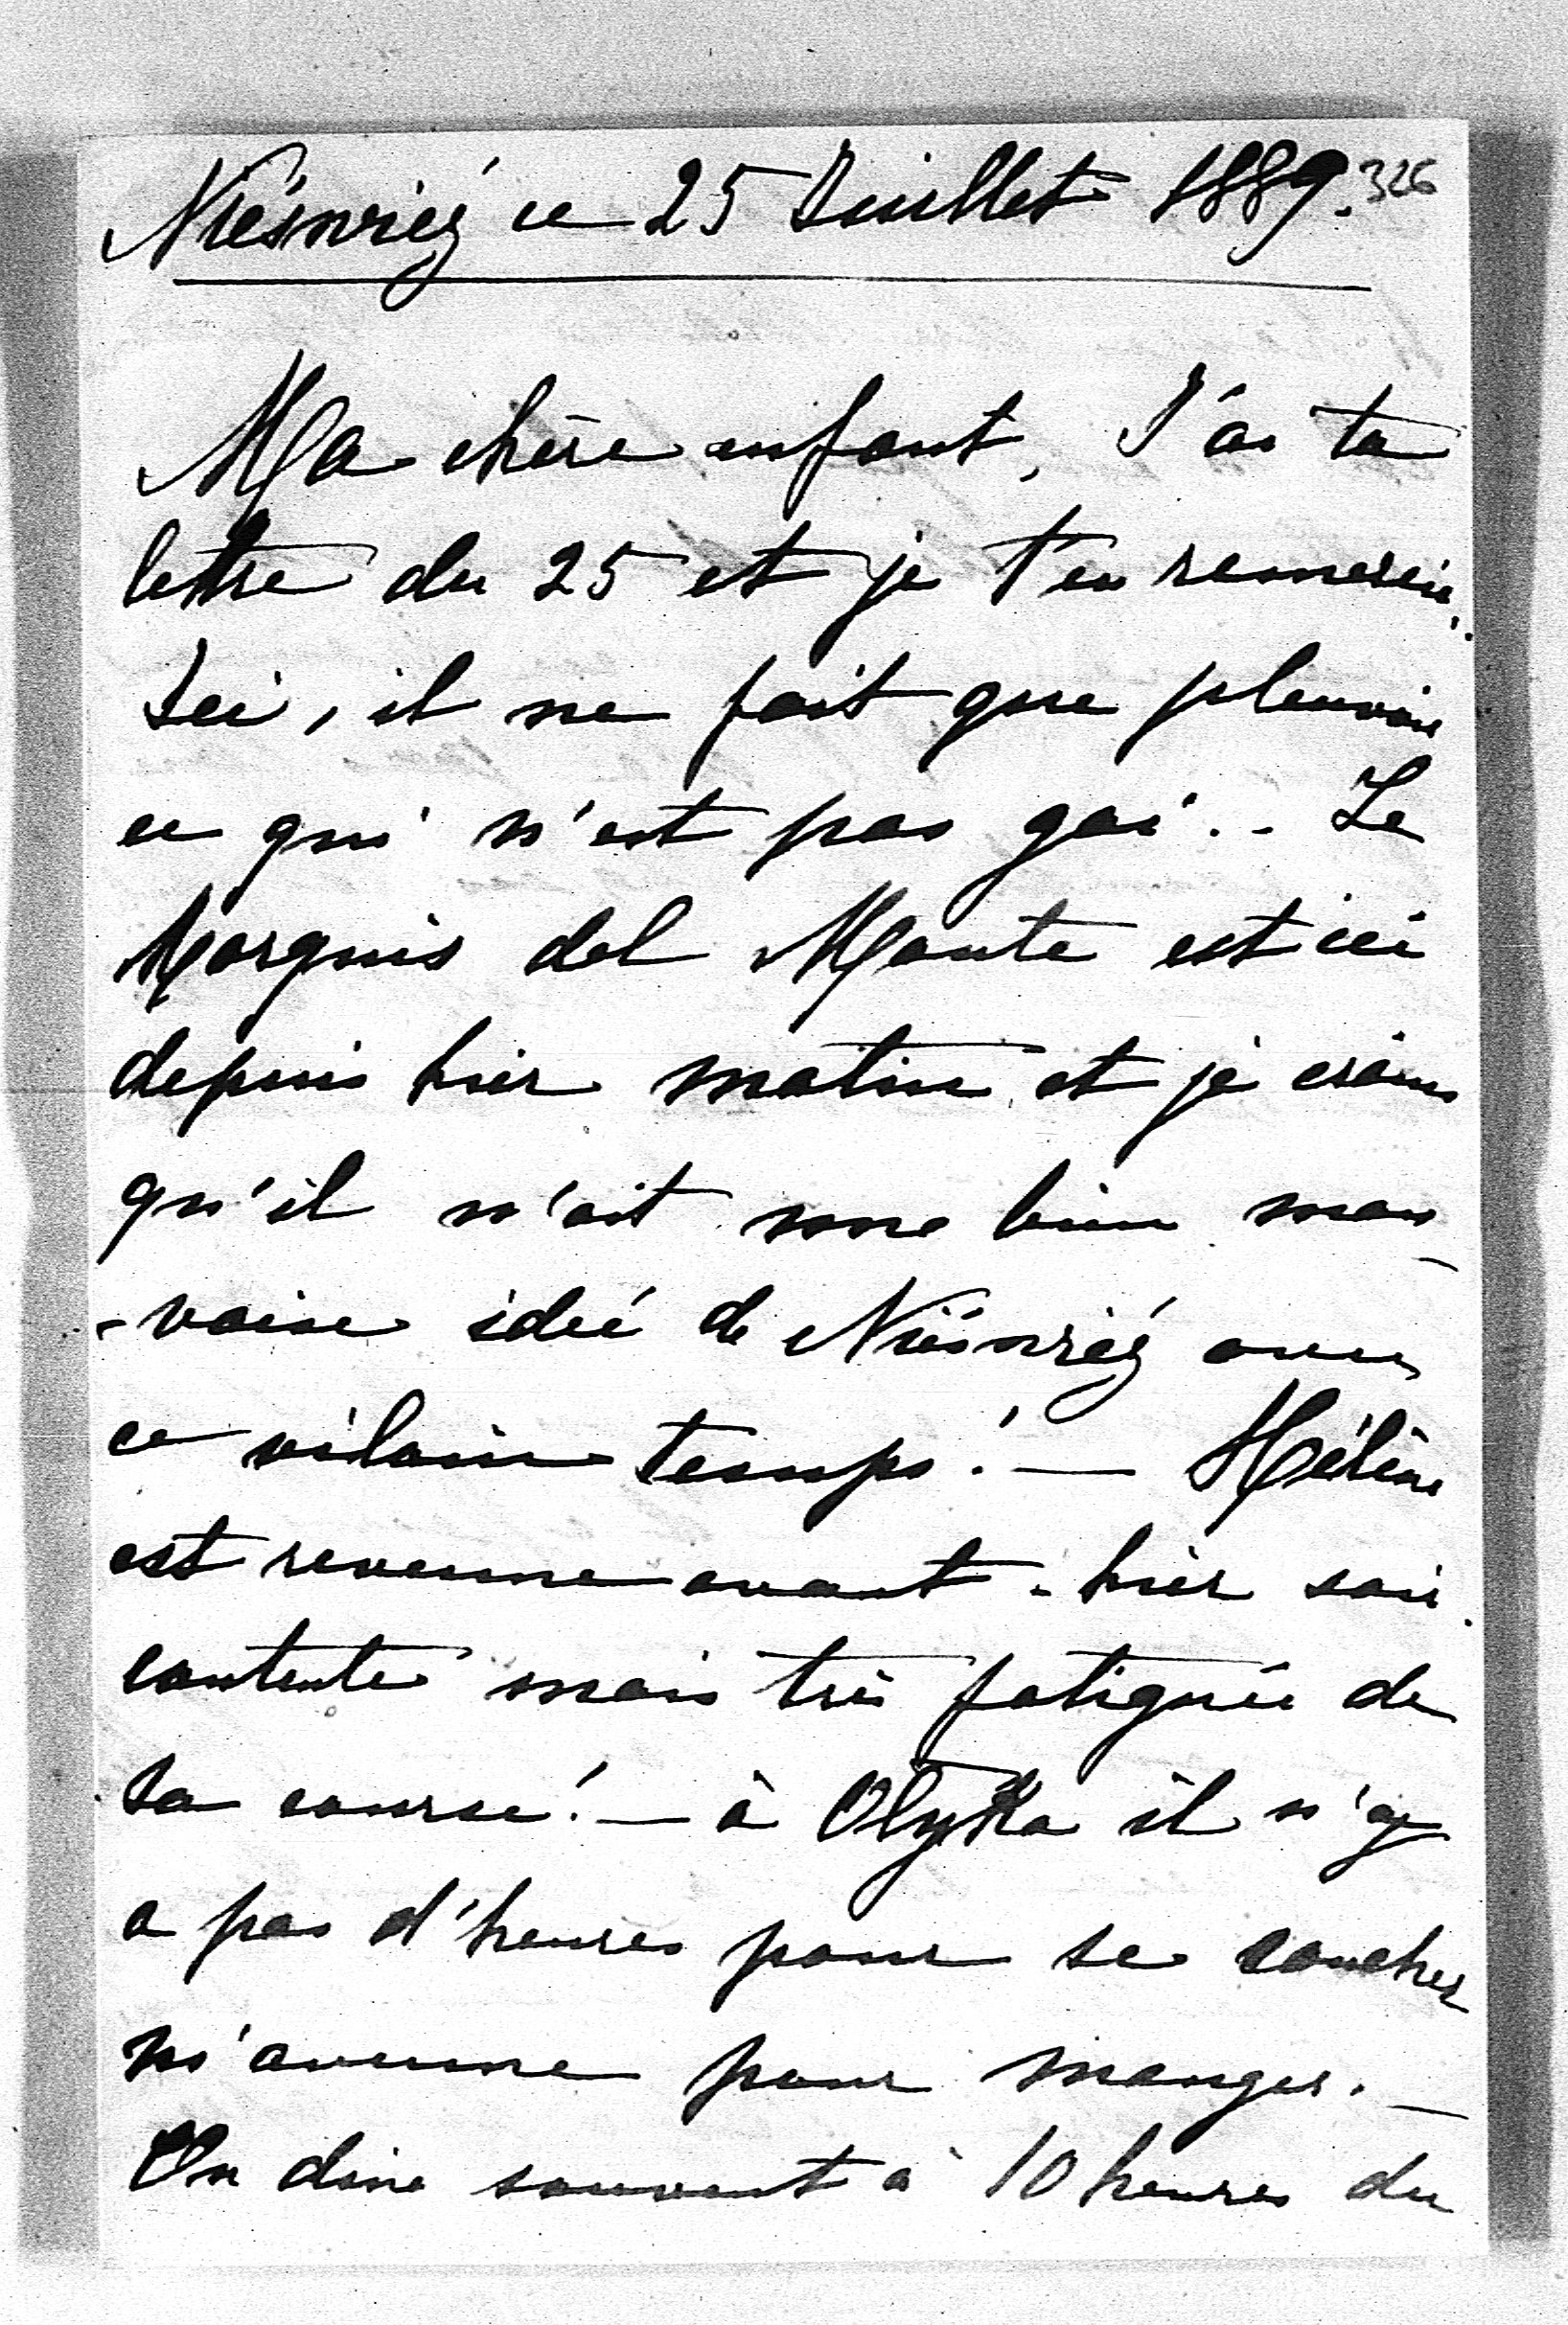 Nieśwież ce 25 Juillet 1889. 326
Ma chère enfant, J'ai ta
lettre du 25 et je t'en remercie,
Ici, il ne fait que pleuvoir
ce qui n'est pas gai.. Le
Marquis del Monte est ici
depuis hier matin et je crains
qu'il n'ait une bien mau-
-vaise idée de Nieśwież avec
ce vilain temps! — Hélène
est revenue avant-hier soir
contente mais très fatiguée de
sa course! — à Olyka il n'y
a pas d'heures pour se coucher
n'aucune pour manger. —
On dine souvent à 10 heures du